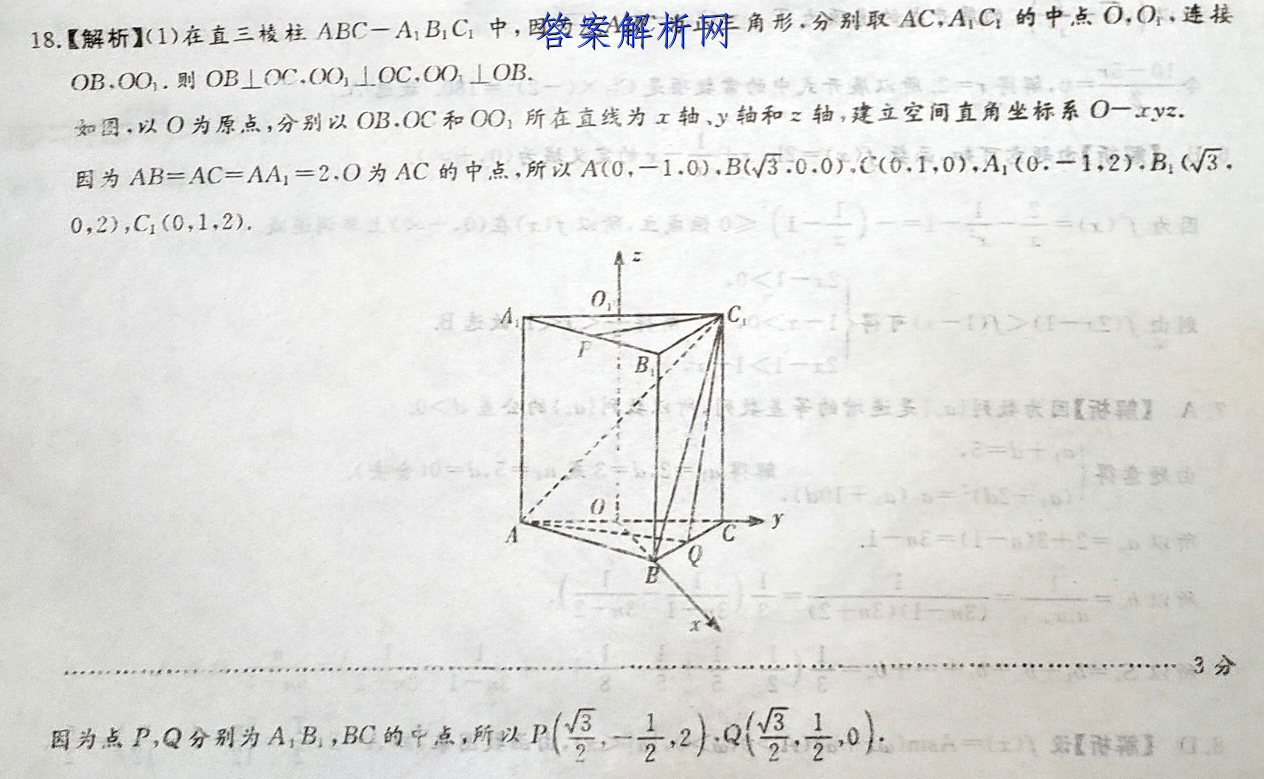 18.【解析】(1)在直三棱柱 ABC-A₁B₁C₁ 中,因为 三角形,分别取 AC,A₁C₁ 的中点 O,O₁,连接
答案解析网
OB,OO₁,则 OB⊥OC,OO₁⊥OC,OO₁⊥OB.
如图,以 O 为原点,分别以 OB,OC 和 OO₁ 所在直线为 x 轴、y 轴和 z 轴,建立空间直角坐标系 O-xyz.
因为 AB=AC=AA₁=2,O 为 AC 的中点,所以 A(0,-1,0),B(√3,0,0),C(0,1,0),A₁(0,-1,2),B₁(√3,
0,2),C₁(0,1,2).
z
A₁ O₁ C₁
P
B₁
A O C y
Q
B
x
3 分
因为点 P,Q 分别为 A₁B₁,BC 的中点,所以 P(√3/2,-1/2,2),Q(√3/2,1/2,0).